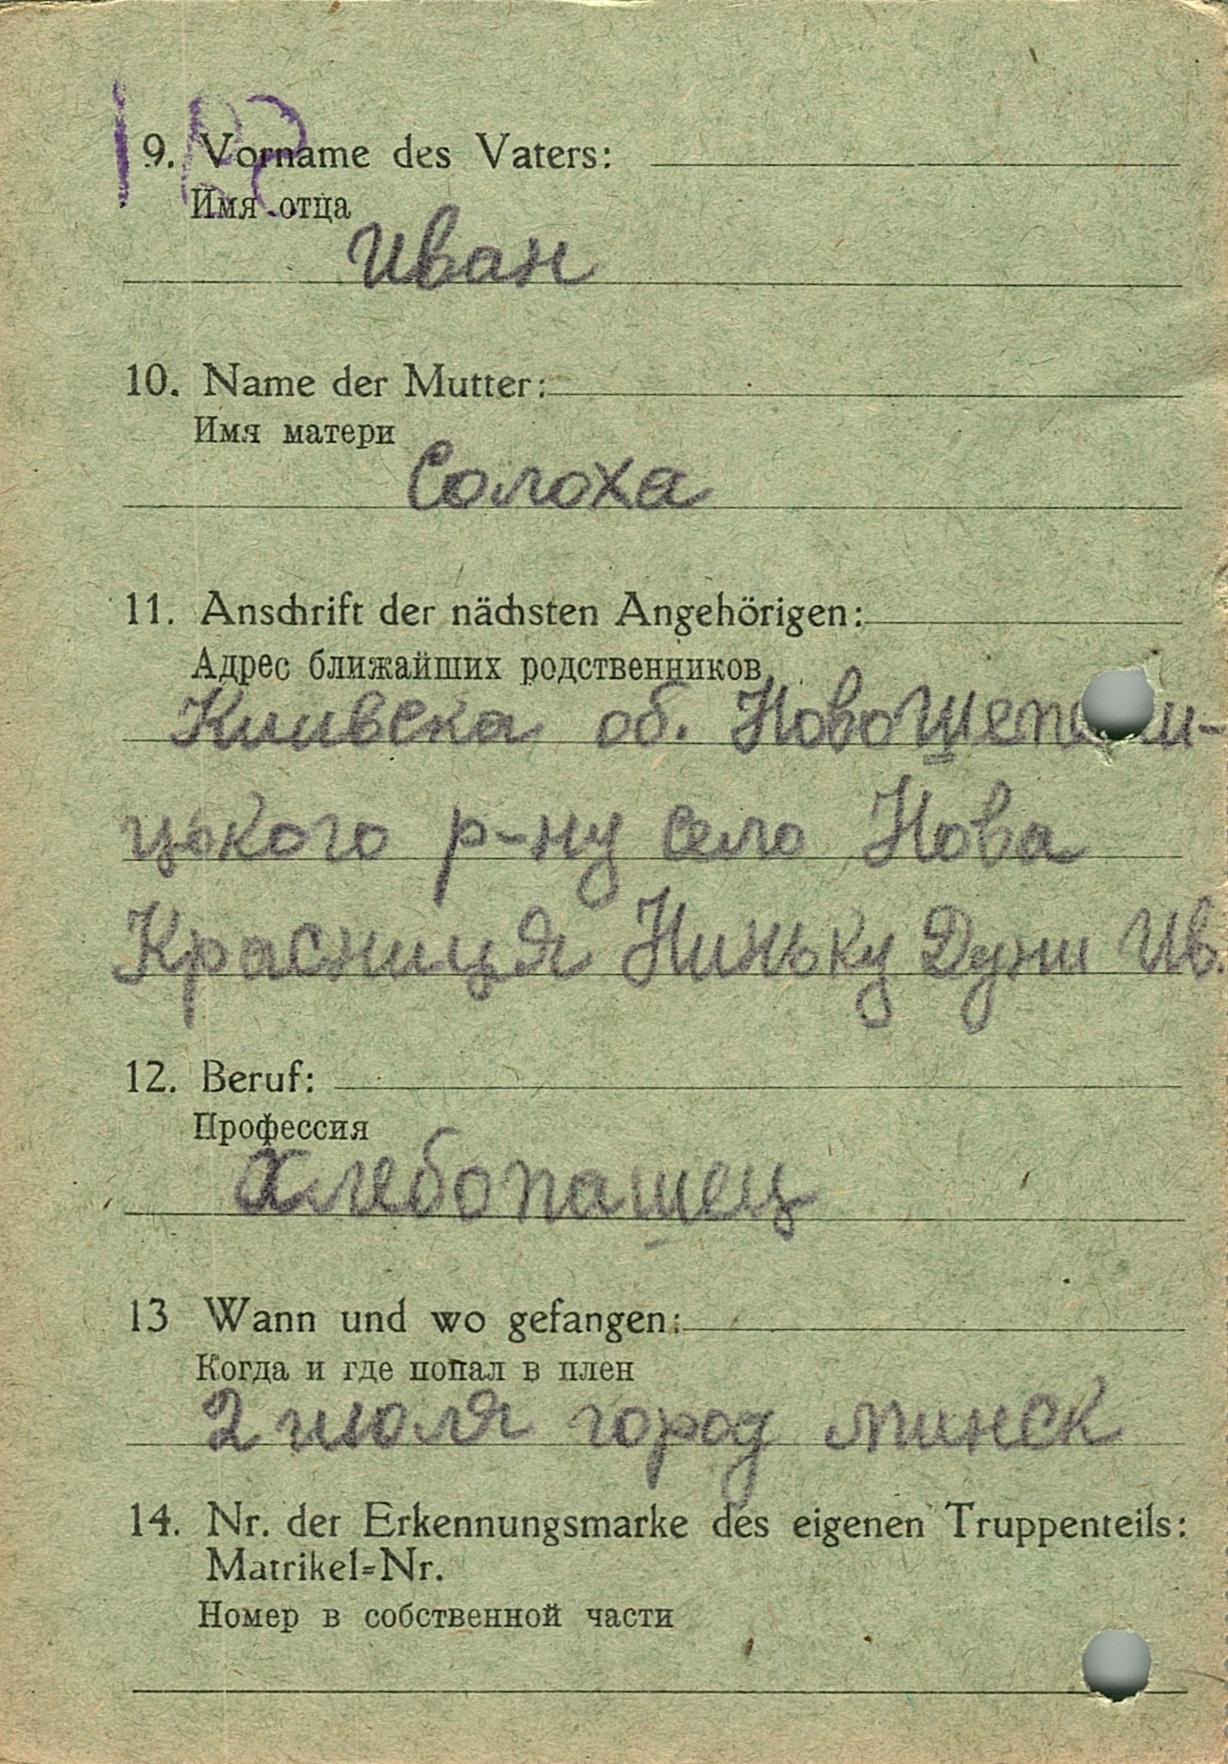 9. Vorname des Vaters:
Имя отца
Иван
10. Name der Mutter:
Имя матери
Солоха
11. Anschrift der nächsten Angehörigen:
Адрес ближайших родственников
Киивска об. 
цького р-ну село Нова
Красниця Ниньку Дуни Ив.
12. Beruf:
Профессия
Хлебопашец
13 Wann und wo gefangen:
Когда и где попал в плен
2 июля город минск
14. Nr. der Erkennungsmarke des eigenen Truppenteils:
Matrikel=Nr.
Номер в собственной части